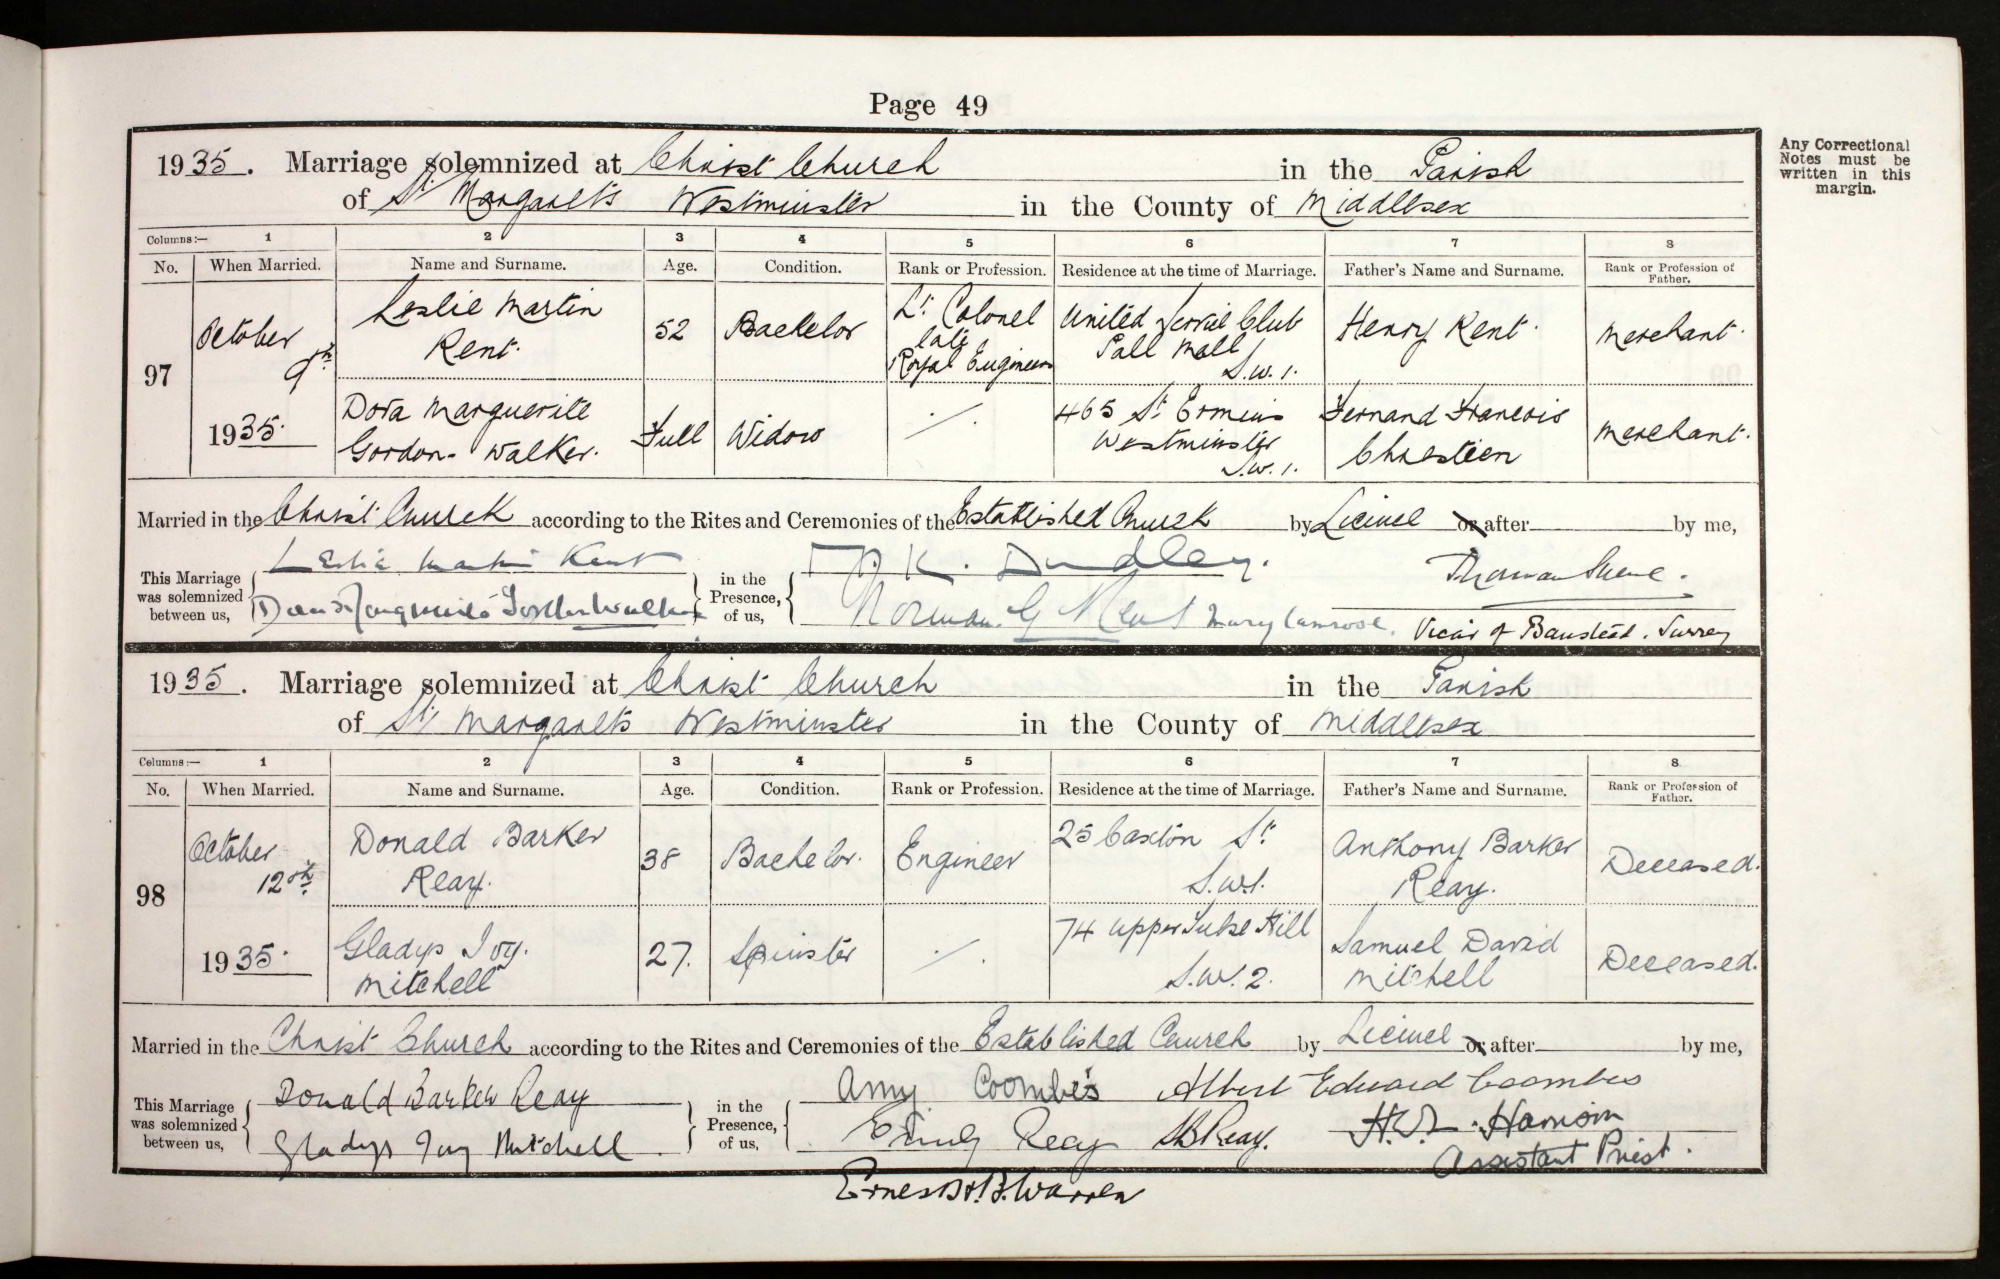 Page 49
Any Correctional
Notes must be
written in this
margin.
1935. Marriage solemnized at Christ Church in the Parish
of St Margaret's Westminster in the County of Middlesex
Columns:— 1 2 3 4 5 6 7 8
No. When Married. Name and Surname. Age. Condition. Rank or Profession. Residence at the time of Marriage. Father's Name and Surname. Rank or Profession of Father.
97 October 9th 1935.
Leslie Martin Kent. 52 Bachelor Lt. Colonel late Royal Engineers United Service Club Pall Mall S.W.1. Henry Kent. Merchant.
Dora Marguerite Gordon-Walker. Full Widow 465 St Ermins Westminster S.W.1. Fernand Francois Merchant.
Married in the Christ Church according to the Rites and Ceremonies of the Established Church by Licence or after by me,
This Marriage was solemnized between us, Leslie Martin Kent in the Presence, of us, K. Dudley.
Dora Marguerite Gordon Walker Norman G Kent Mary
Vicar of Banstead. Surrey
1935. Marriage solemnized at Christ Church in the Parish
of St Margaret's Westminster in the County of Middlesex
Columns:— 1 2 3 4 5 6 7 8
No. When Married. Name and Surname. Age. Condition. Rank or Profession. Residence at the time of Marriage. Father's Name and Surname. Rank or Profession of Father.
98 October 12th 1935.
Donald Barker Reay. 38 Bachelor. Engineer 25 Caxton St. S.W.1. Anthony Barker Reay. Deceased.
Gladys Ivy. Mitchell 27. Spinster 74 Upper Tulse Hill S.W.2. Samuel David Mitchell Deceased.
Married in the Christ Church according to the Rites and Ceremonies of the Established Church by Licence or after by me,
This Marriage was solemnized between us, Donald Barker Reay in the Presence, of us, Amy Coombes Albert Edward Coombes
Gladys Ivy Mitchell. Emily Reay Reay.
Assistant Priest.
Warren